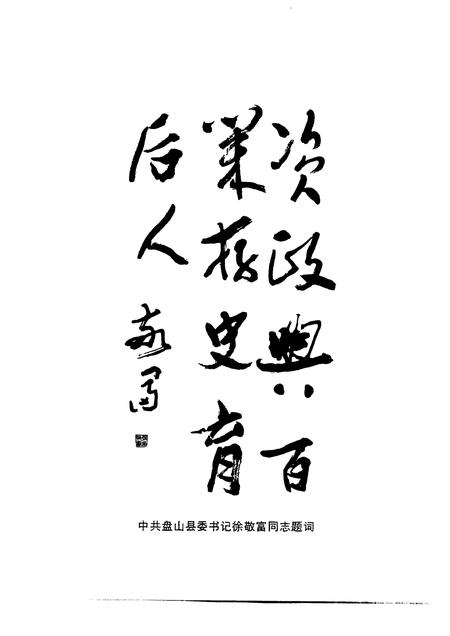 资政興百
業存史育
后人
敬富
中共盘山县委书记徐敬富同志题词